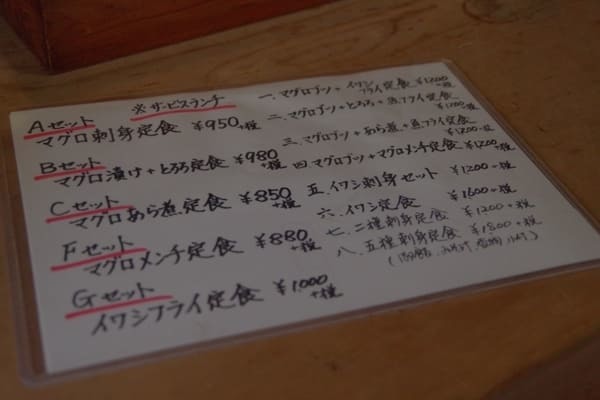 ※サービスランチ
Aセット
マグロ刺身定食 ¥950+税
Bセット
マグロ漬け+とろろ定食 ¥980+税
Cセット
マグロあら煮定食 ¥850+税
Fセット
マグロメンチ定食 ¥880+税
Gセット
イワシフライ定食 ¥1,000+税
一. マグロブツ+イワシフライ定食 ¥1200+税
二. マグロブツ+とろろ+魚フライ定食 ¥1200+税
三. マグロブツ+あら煮+魚フライ定食 ¥1200+税
四 マグロブツ+マグロメンチ定食 ¥1200+税
五. イワシ刺身セット ¥1200+税
六. イワシ定食 ¥1600+税
七. 二種刺身定食 ¥1200+税
八. 五種刺身定食 ¥1800+税
(御飯、みそ汁、香物、小付)